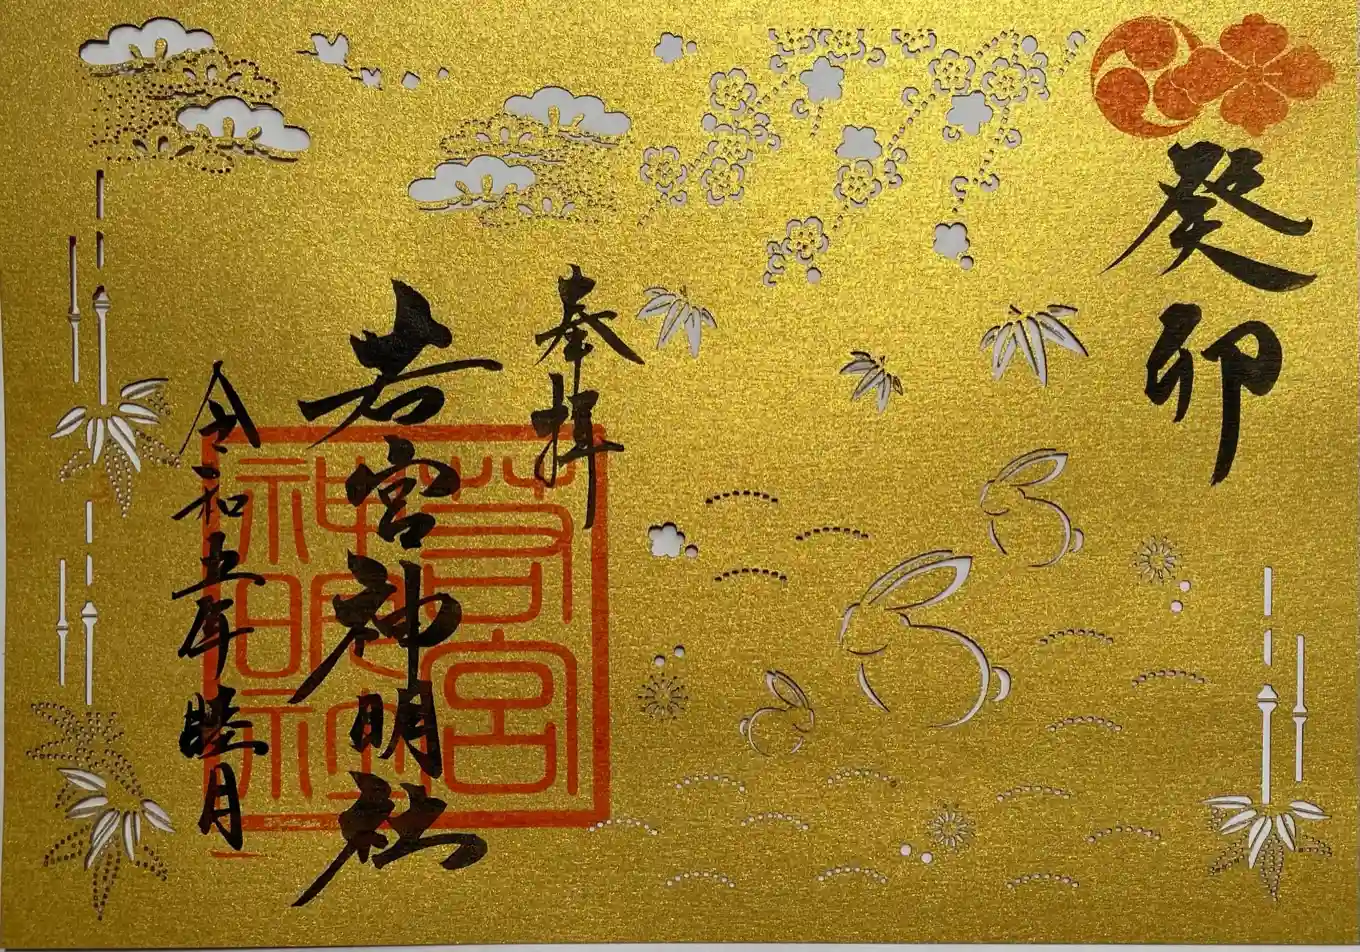 癸卯
奉拝
若宮神明社
令和五年睦月
若宮神明社